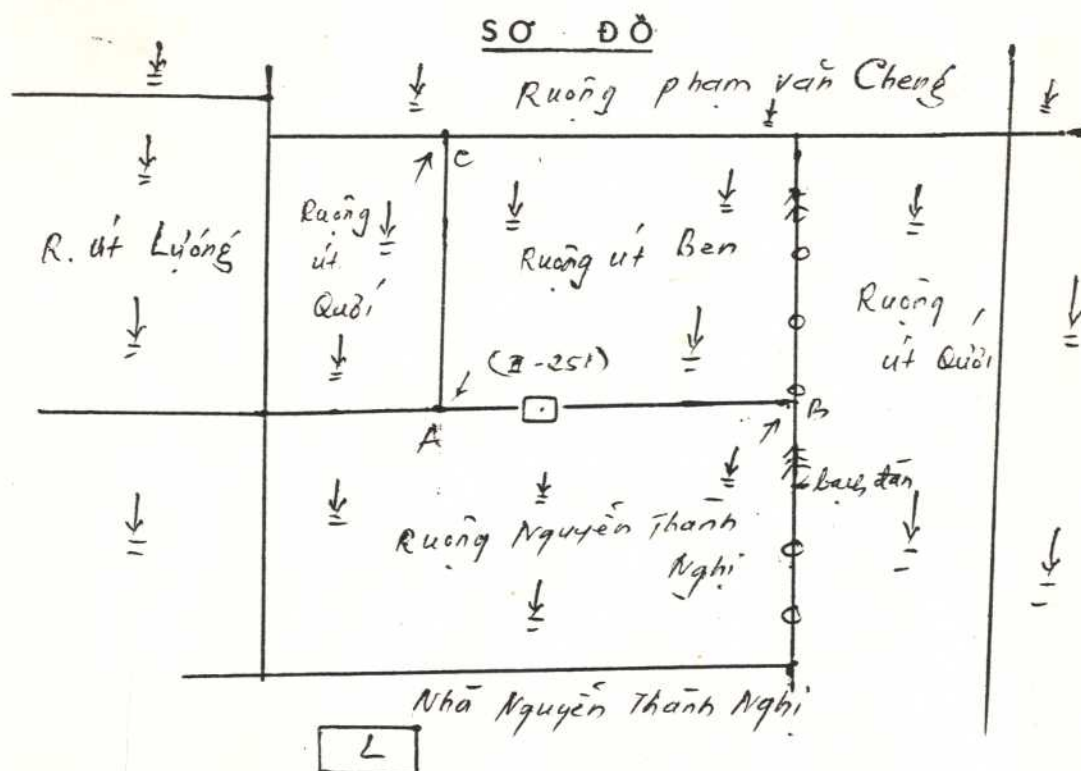 SƠ ĐỒ
Ruộng phạm văn Cheng
C
R. út Lượng
Ruộng
út
Quới
Ruộng út Ben
Ruộng
út Quới
(II-251)
A
B
bạch đàn
Ruộng Nguyễn Thành
Nghị
Nhà Nguyễn Thành Nghị
L